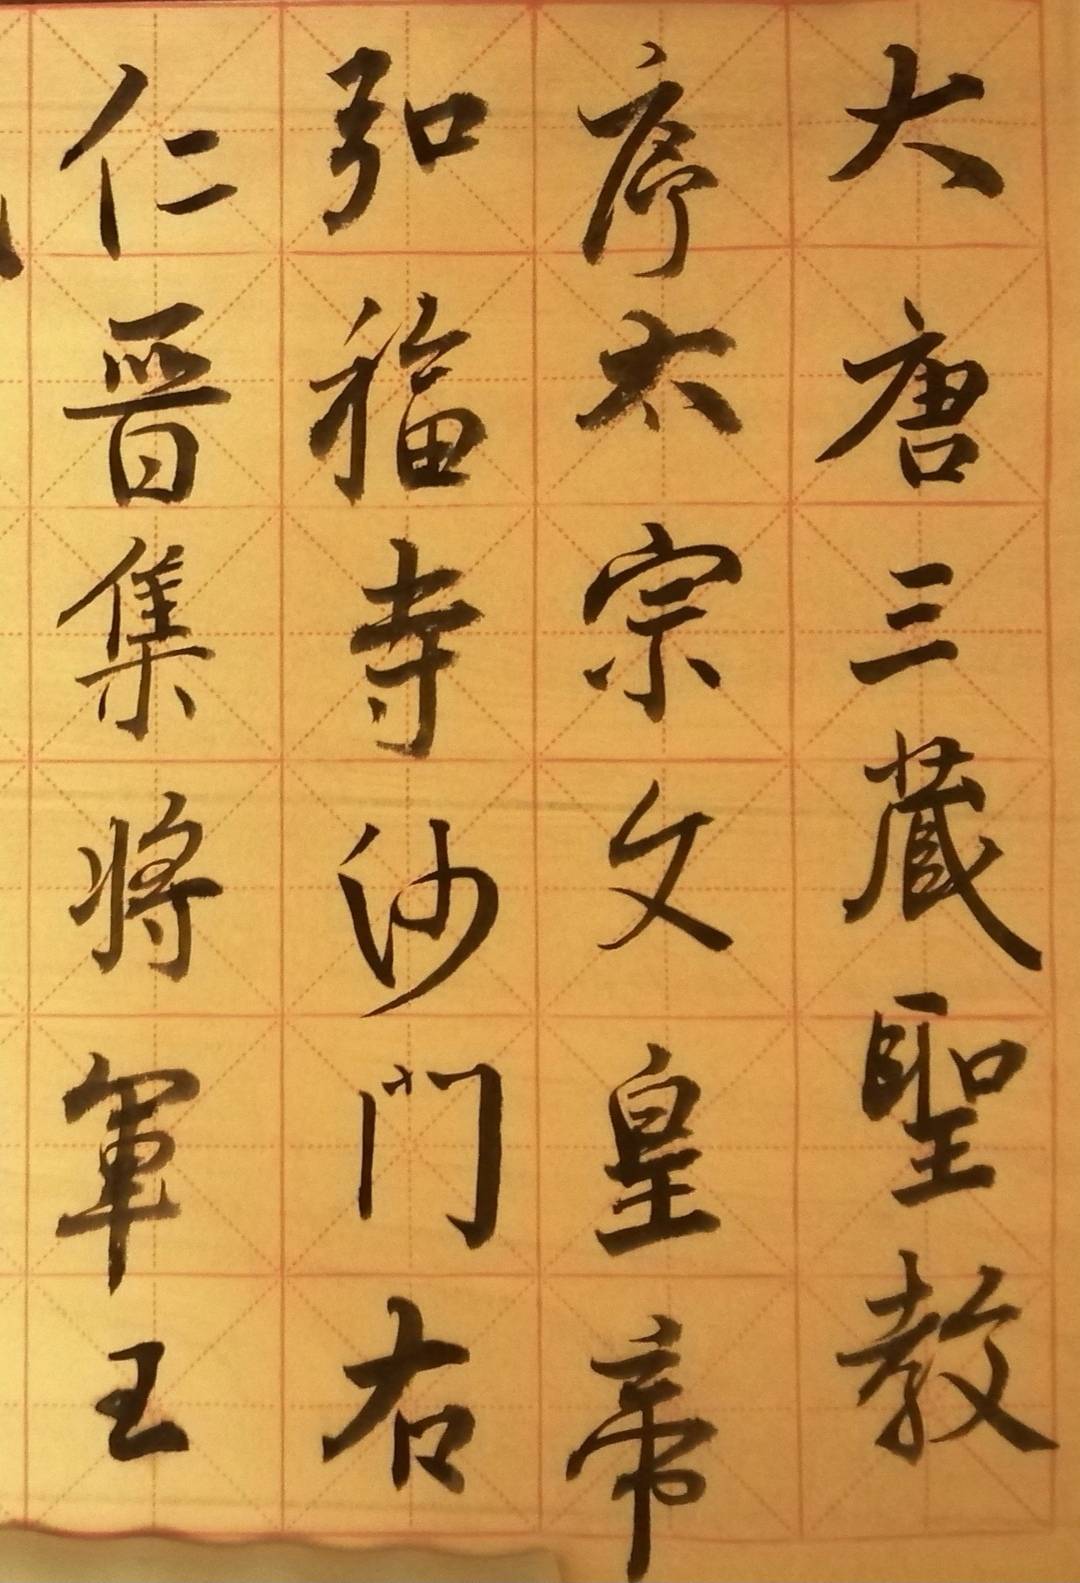 大唐三藏聖教
序太宗文皇帝
弘福寺沙門右
仁晉集將軍王